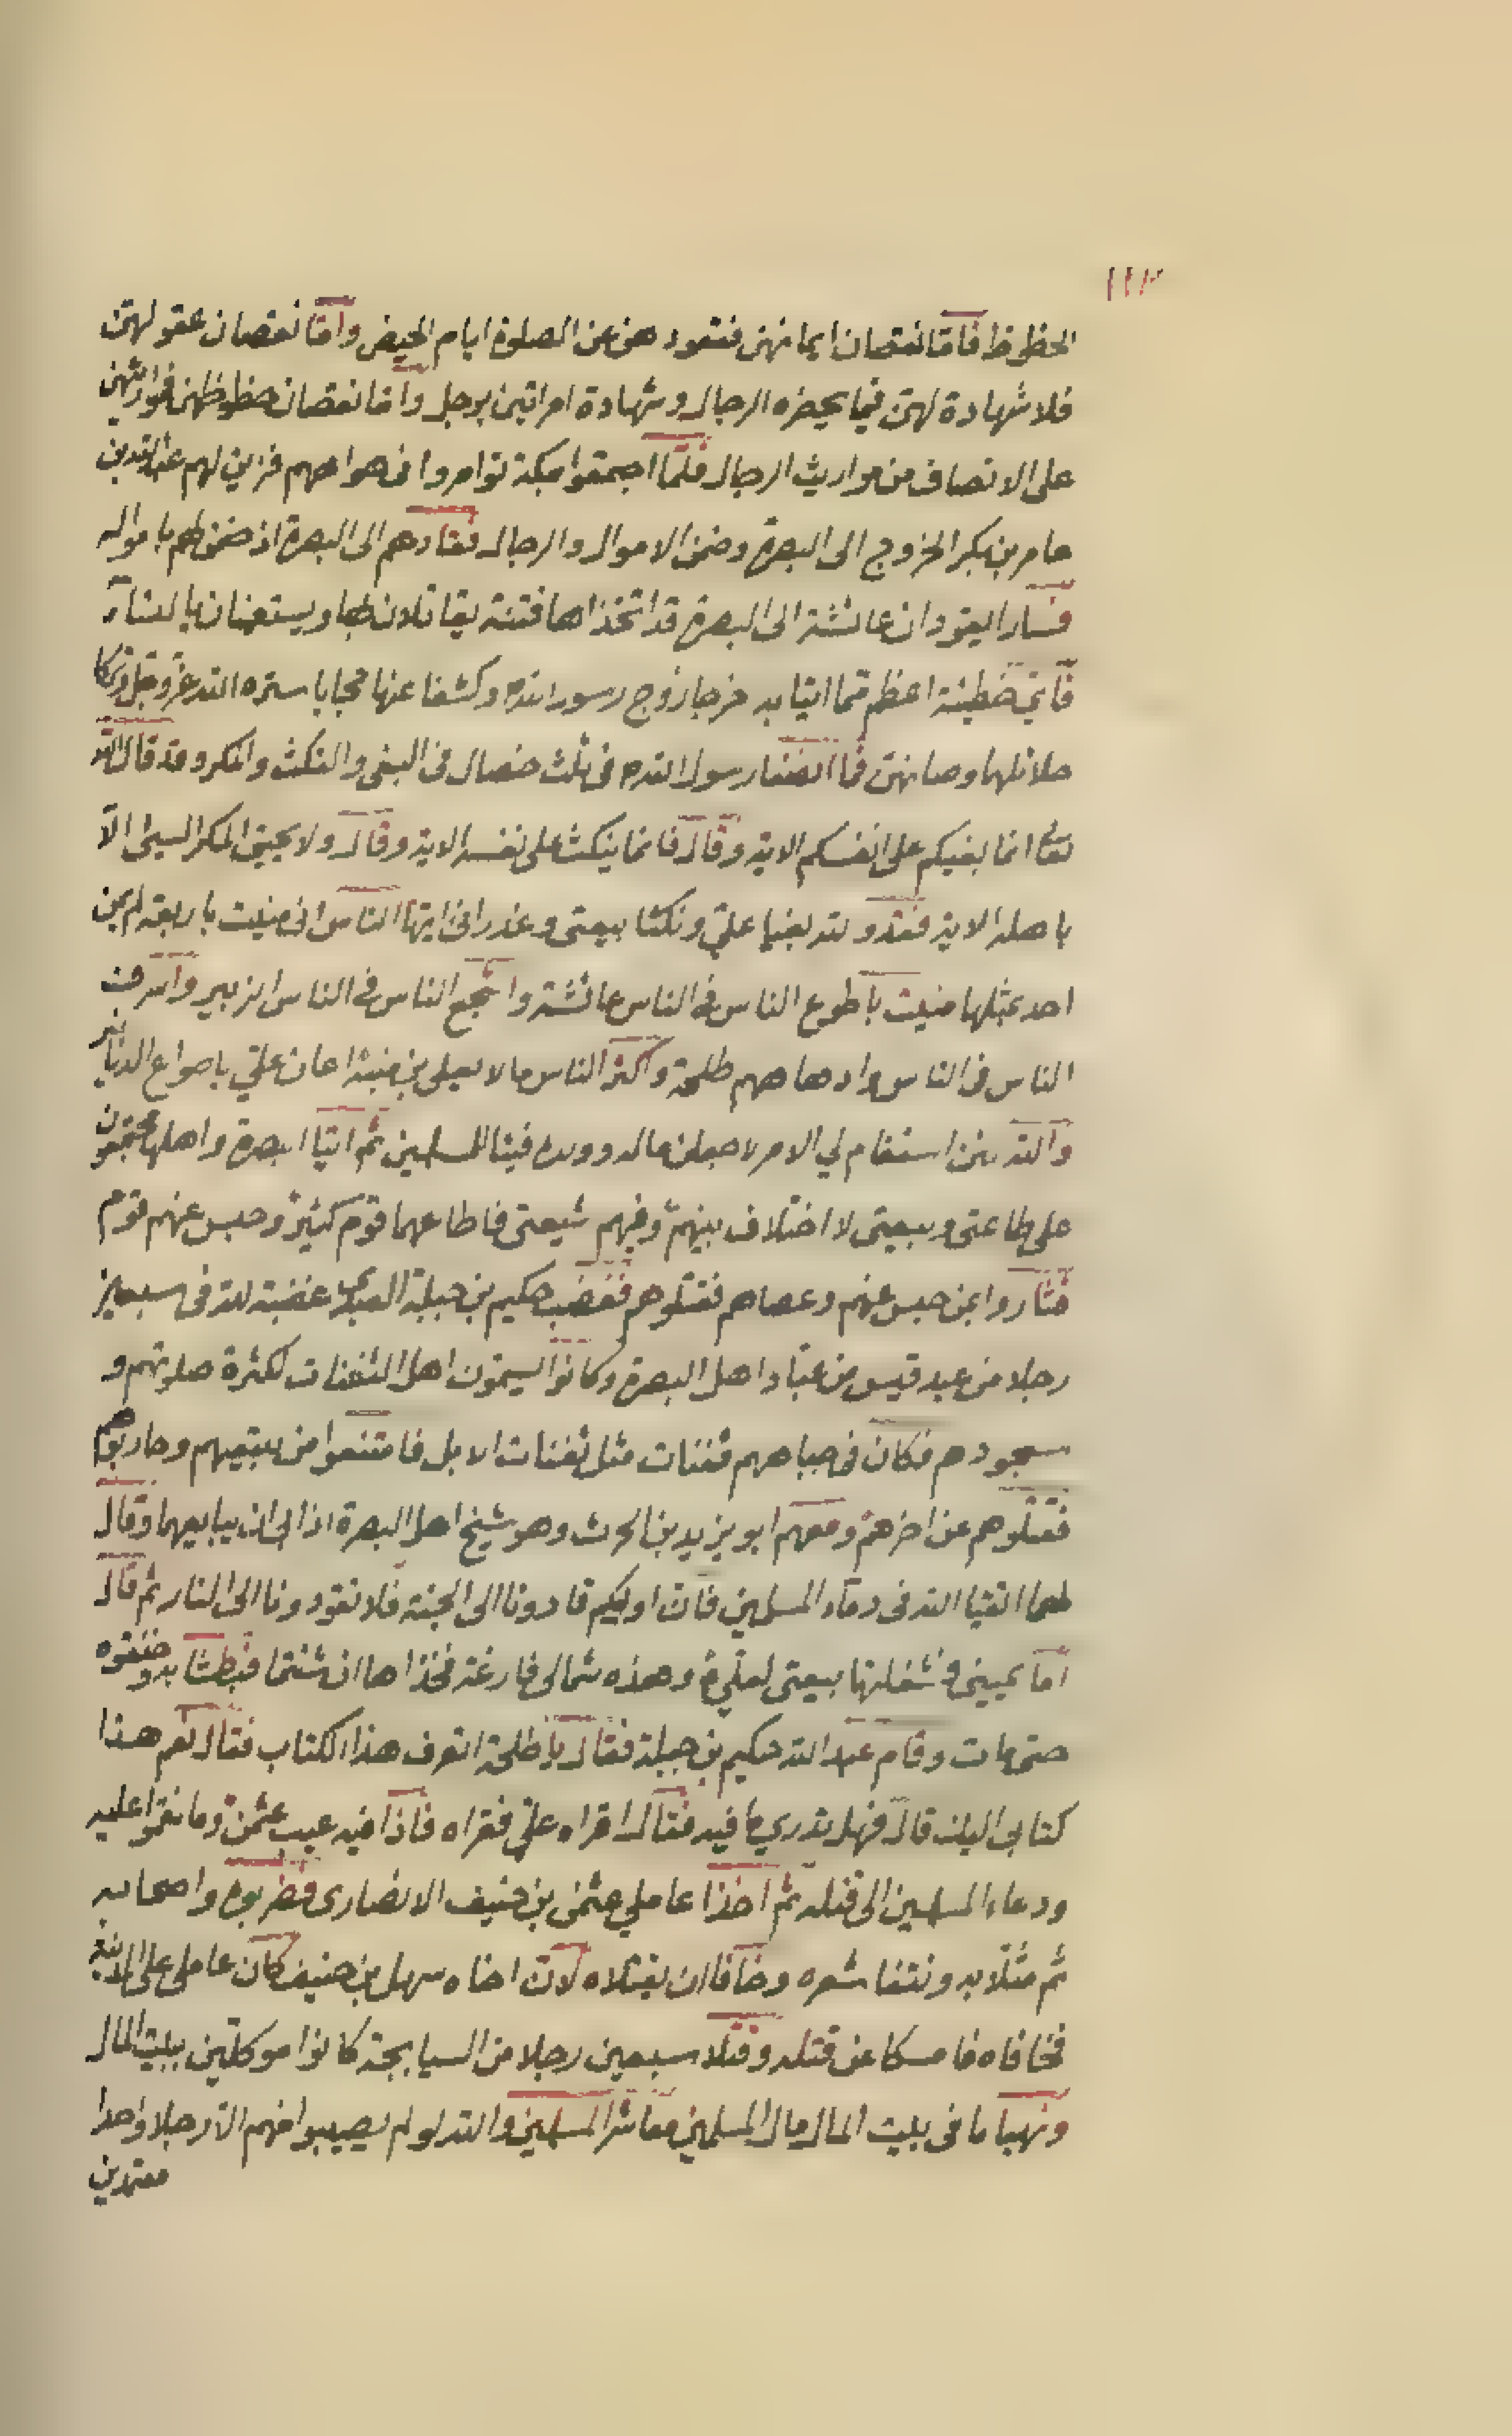 ١١٢
الحظوظ فاما نقصان ايمانهن فقعودهن عن الصلوة ايام الحيض واما نقصان عقولهن
فلا شهادة لهن فيما يحضره الرجال وشهادة امراتين برجل واما نقصان حظوظهن فمواريثهن
على الانصاف من مواريث الرجال فلما اجمعوا بمكة توامروا في هواهم فزين لهم عبدالله بن
عامر بن بكر الخروج الى البصرة وضمن الاموال والرجال فقادهم الى البصرة اذ ضمن لهم باموال
فسارا يقودان عائشة الى البصرة قد اتخذاها فتنة يقاتلون بها ويستعينان بالنساء
فاي خطيئة اعظم مما اتيا به خرجا زوج رسول الله وكشفا عنها حجابا ستره الله عز وجل وتركا
حلائلهما وصانهن فما انصفا رسول الله في ثلث خصال في البغي والنكث والمكر وقد قال الله
تعالى انما بغيكم على انفسكم الاية وقال فانما ينكث على نفسه الاية وقال ولا يحيق المكر السيئ الا
باهله الاية فقد والله بغيا علي ونكثا بيعتي وغدرا في ايها الناس اني منيت باربعة لم يمن
احد بمثلها منيت باطوع الناس في الناس عائشة واشجع الناس في الناس الزبير واشرف
الناس في الناس وادهاهم طلحة واكثر الناس مالا يعلى بن منية اعان علي باصواع الدنانير
والله لئن استقام لي الامر لاجعلن ماله وولده فيئا للمسلمين ثم اتيا البصرة واهلها مجتمعون
على طاعتي وبيعتي لا اختلاف بينهم وفيهم شيعتي فاطاعهما قوم كثير وحبس عنهم قوم
فثاروا بمن حبس عنهم وعصاهم فقتلوهم فغضب حكيم بن جبلة العبدي غضبة لله في سبعين
رجلا من عبد قيس من عباد اهل البصرة وكانوا يسمون اهل الثفنات لكثرة صلوتهم و
سجودهم فكان في جباههم ثفنات مثل ثفنات الابل فامتنعوا من بيعتهم وحاربوهم
فقتلوهم عن اخرهم ومعهم ابو يزيد بن الحرث وهو شيخ اهل البصرة اذ ابى ان يبايعهما وقال
لهما اتقيا الله في دماء المسلمين فان اوليكم قادونا الى الجنة فلا تقودونا الى النار ثم قال
اما يميني فشغلتها بيعتي لعلي وهذه شمالي فارغة فخذاها ان شئتما فبطشا به وخنقوه
حتى مات وقام عبد الله حكيم بن جبلة فقال يا طلحة اتعرف هذا الكتاب فقال نعم هذا
كتابي اليك قال فهل تدري ما فيه فقال اقراه علي فقراه فاذا فيه عيب عثمن وما نقموا عليه
ودعاء المسلمين الى قتله ثم اخذا عاملي عثمن بن حنيف الانصارى فضربوه واصحابه
ثم مثلا به ونتفا شعره وخافا ان يقتلاه لان اخاه سهل بن حنيف كان عاملي على المدينة
فخافاه فامسكا عن قتله وقتلا سبعين رجلا من السيابجة كانوا موكلين ببيت المال
ونهبا ما في بيت المال مال المسلمين معاشر المسلمين والله لو لم يصيبوا منهم الا رجلا واحدا
معتمدين